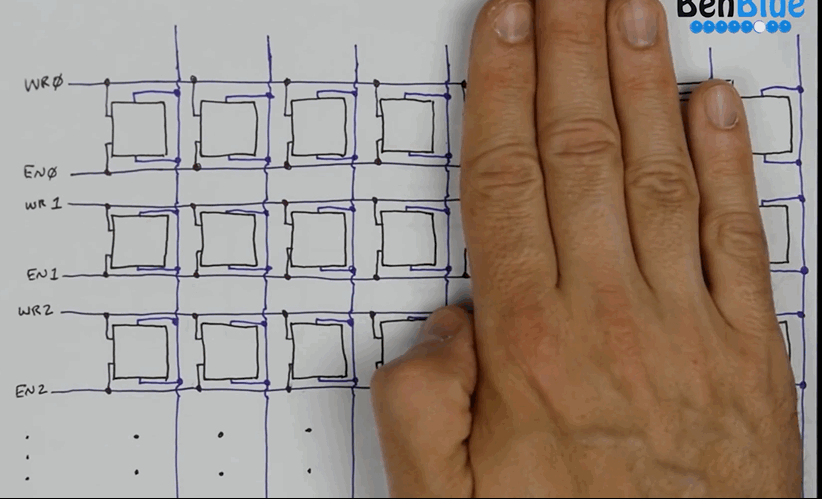 BenBlue
WRØ
ENØ
WR1
EN1
WR2
EN2